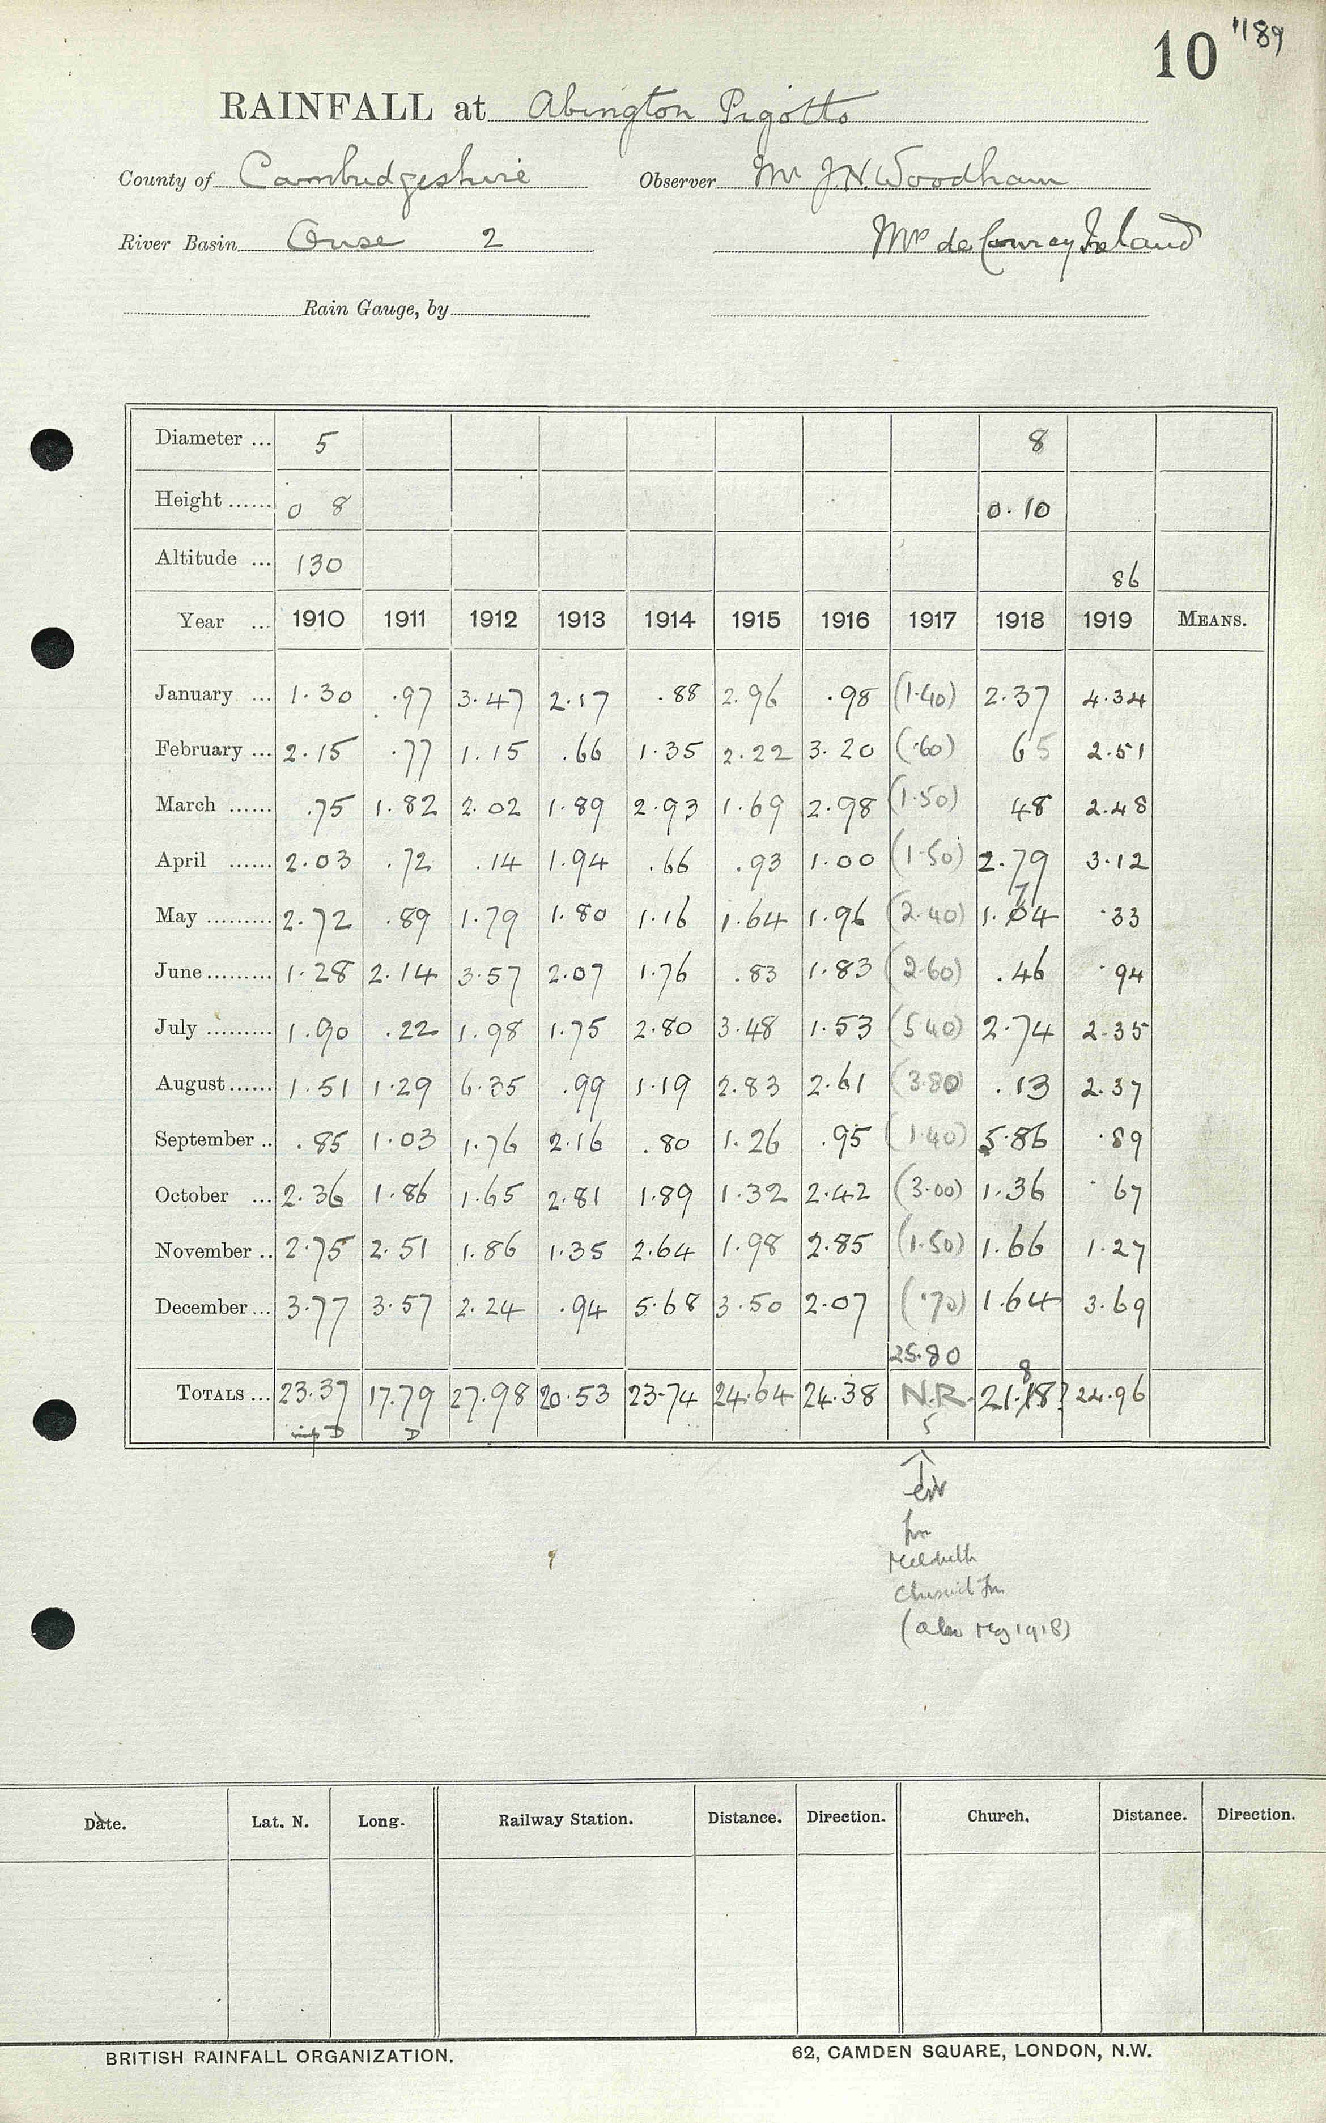 10 11189
RAINFALL at Abington Pigotts
County of Cambridgeshire Observer Mr J.N. Woodham
River Basin Ouse 2 Mrs de Courcy Ireland
Rain Gauge, by
Diameter ... 5 8
Height ...... 0 8 0.10
Altitude ... 130 86
Year ... 1910 1911 1912 1913 1914 1915 1916 1917 1918 1919 MEANS.
January ... 1.30 .97 3.47 2.17 .88 2.96 .98 (1.40) 2.37 4.34
February ... 2.15 .77 1.15 .66 1.35 2.22 3.20 (.60) 65 2.51
March ...... .75 1.82 2.02 1.89 2.93 1.69 2.98 (1.50) 48 2.48
April ...... 2.03 .72 .14 1.94 .66 .93 1.00 (1.50) 2.79 3.12
May ......... 2.72 .89 1.79 1.80 1.16 1.64 1.96 (2.40) 1.04 .33
June ......... 1.28 2.14 3.57 2.07 1.76 .83 1.83 (2.60) .46 .94
July ......... 1.90 .22 1.98 1.75 2.80 3.48 1.53 (5.40) 2.74 2.35
August ...... 1.51 1.29 6.35 .99 1.19 2.83 2.61 (3.80) .13 2.37
September .. .85 1.03 1.76 2.16 .80 1.26 .95 (1.40) 5.86 .89
October ... 2.36 1.86 1.65 2.81 1.89 1.32 2.42 (3.00) 1.36 .67
November .. 2.75 2.51 1.86 1.35 2.64 1.98 2.85 (1.50) 1.66 1.27
December ... 3.77 3.57 2.24 .94 5.68 3.50 2.07 (.70) 1.64 3.69
25.80 8
TOTALS ... 23.37 17.79 27.98 20.53 23.74 24.64 24.38 N.R. 21.18? 24.96
D D 5
fm
Meldreth
(also May 1918)
Date. Lat. N. Long. Railway Station. Distance. Direction. Church. Distance. Direction.
BRITISH RAINFALL ORGANIZATION. 62, CAMDEN SQUARE, LONDON, N.W.